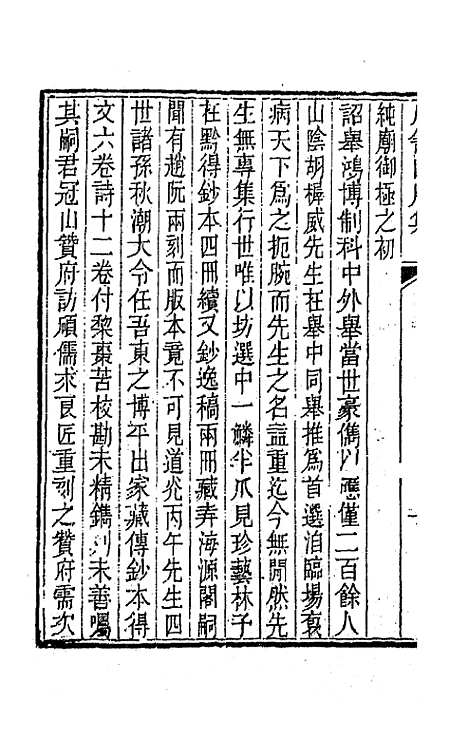 純廟御極之初
詔舉鴻博制科中外舉當世豪儁以應僅二百餘人
山陰胡穉威先生在舉中同舉推爲首選洎臨場衰
病天下爲之扼腕而先生之名益重迄今無閒然先
生無專集行世唯以坊選中一鱗半爪見珍藝林子
在黔得鈔本四冊續又鈔逸稿兩冊藏弆海源閣嗣
聞有趙阮兩刻而版本竟不可見道光丙午先生四
世諸孫秋潮大令任吾東之博平出家藏傳鈔本得
文六卷詩十二卷付黎棗苦校勘未精鐫刋未善囑
其嗣君冠山贊府訪碩儒求良匠重刻之贊府需次